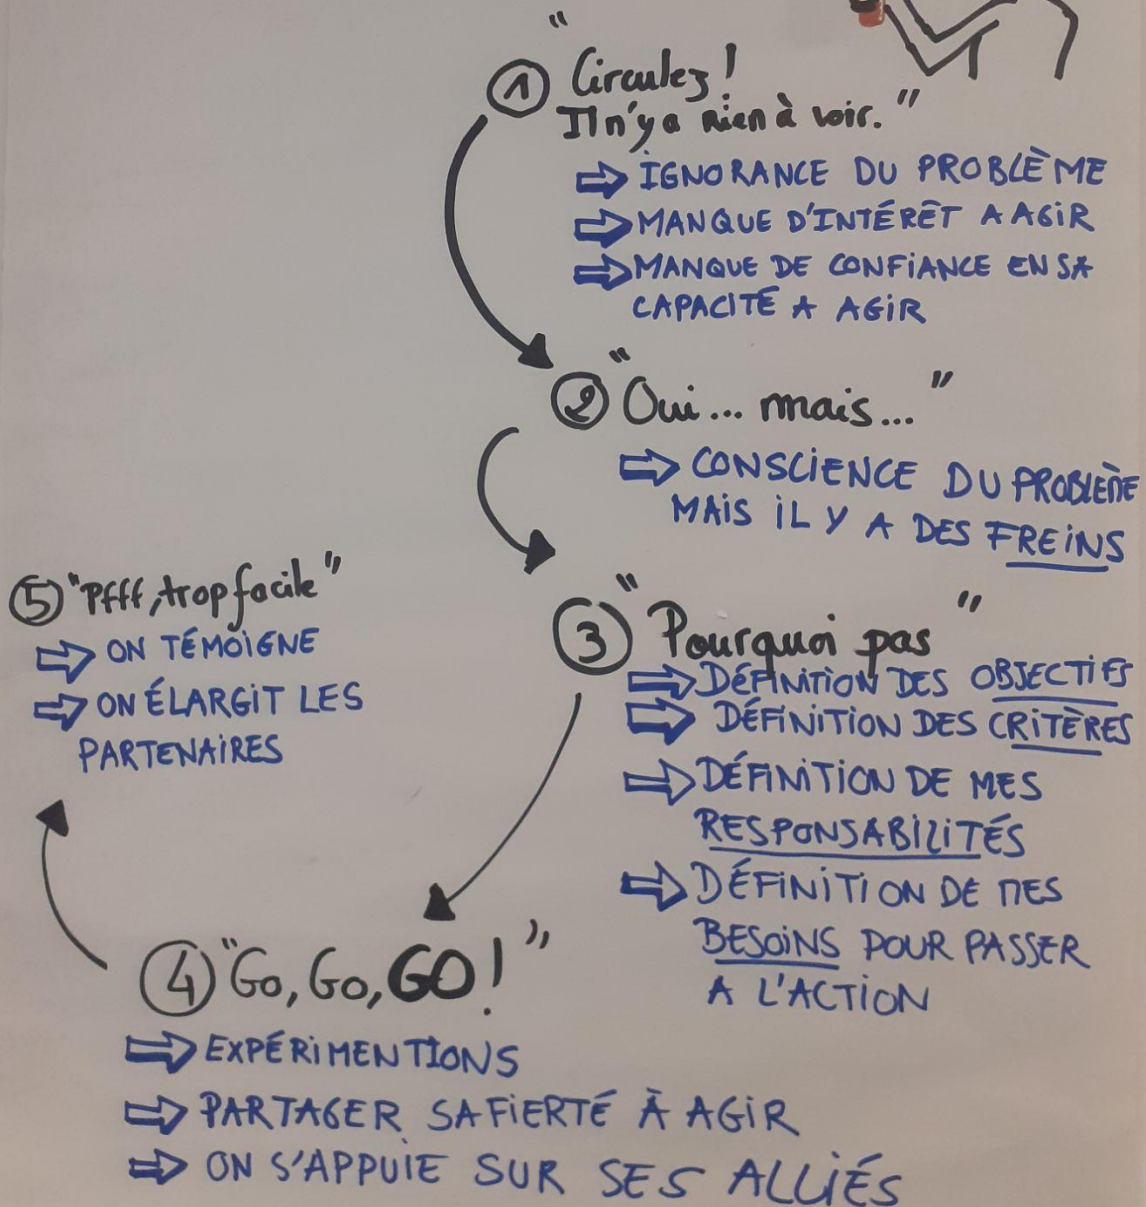 ① "Circulez !
Il n'y a rien à voir."
⇨ IGNORANCE DU PROBLÈME
⇨ MANQUE D'INTÉRÊT A AGIR
⇨ MANQUE DE CONFIANCE EN SA
CAPACITÉ A AGIR
② "Oui... mais..."
⇨ CONSCIENCE DU PROBLÈME
MAIS IL Y A DES FREINS
③ "Pourquoi pas"
⇨ DÉFINITION DES OBJECTIFS
⇨ DÉFINITION DES CRITÈRES
⇨ DÉFINITION DE MES
RESPONSABILITÉS
⇨ DÉFINITION DE MES
BESOINS POUR PASSER
A L'ACTION
④ "Go, Go, GO !"
⇨ EXPÉRIMENTIONS
⇨ PARTAGER SA FIERTÉ À AGIR
⇨ ON S'APPUIE SUR SES ALLIÉS
⑤ "Pfff, trop facile"
⇨ ON TÉMOIGNE
⇨ ON ÉLARGIT LES
PARTENAIRES